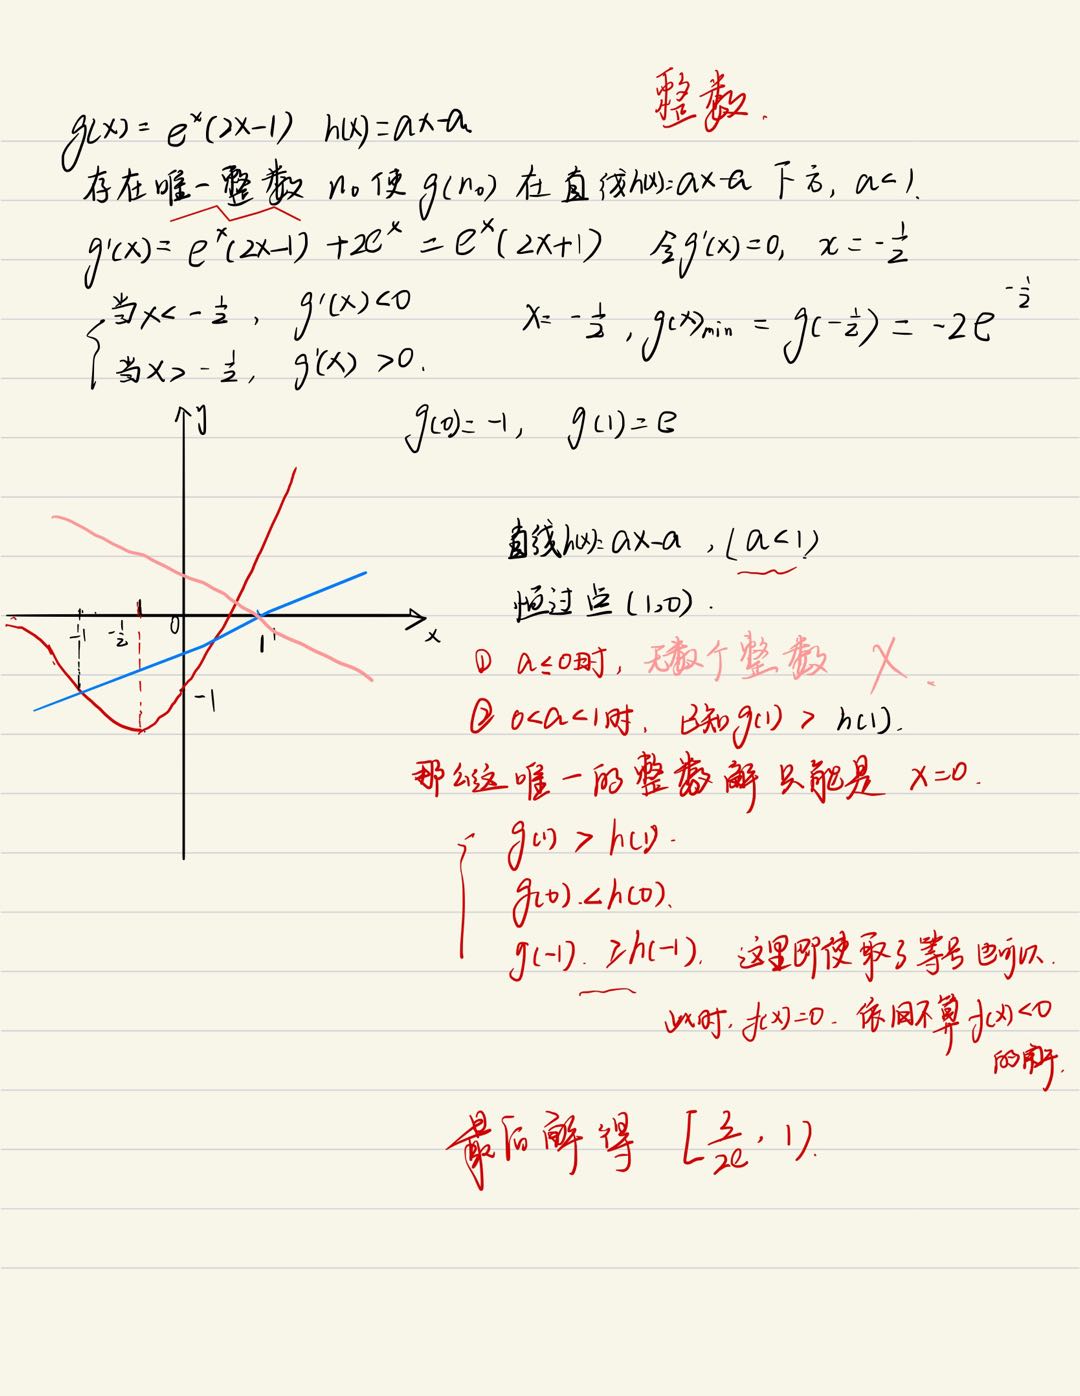 整数.
g(x) = eˣ(2x-1)  h(x) = ax-a
存在唯一整数 n₀使 g(n₀) 在直线h(x)=ax-a 下方, a<1.
g'(x) = eˣ(2x-1) + 2eˣ = eˣ(2x+1)  令g'(x)=0, x = -1/2
当x< -1/2, g'(x)<0  x= -1/2, g(x)min = g(-1/2) = -2e^(-1/2)
当x> -1/2, g'(x) >0.
y
g(0)= -1, g(1)= e
直线h(x)= ax-a, (a<1)
恒过点 (1,0).
-1 -1/2 0 1 x
① a≤0时, 无数个整数 X.
-1
② 0<a<1时. 已知g(1) > h(1).
那么这唯一的整数解只能是 x=0.
g(1) > h(1).
g(0) < h(0).
g(-1) ≥ h(-1). 这里即使取了等号也可以.
此时, f(x)=0. 依旧不算 f(x)<0
的解.
最后解得 [3/2e, 1).